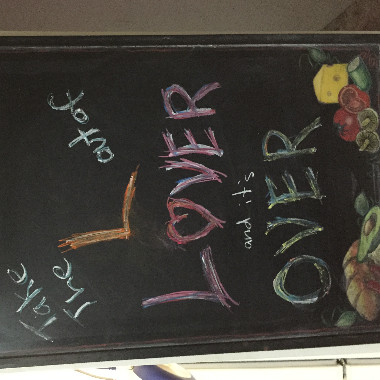 Take
The
L
out of
LOVER
and it's
OVER